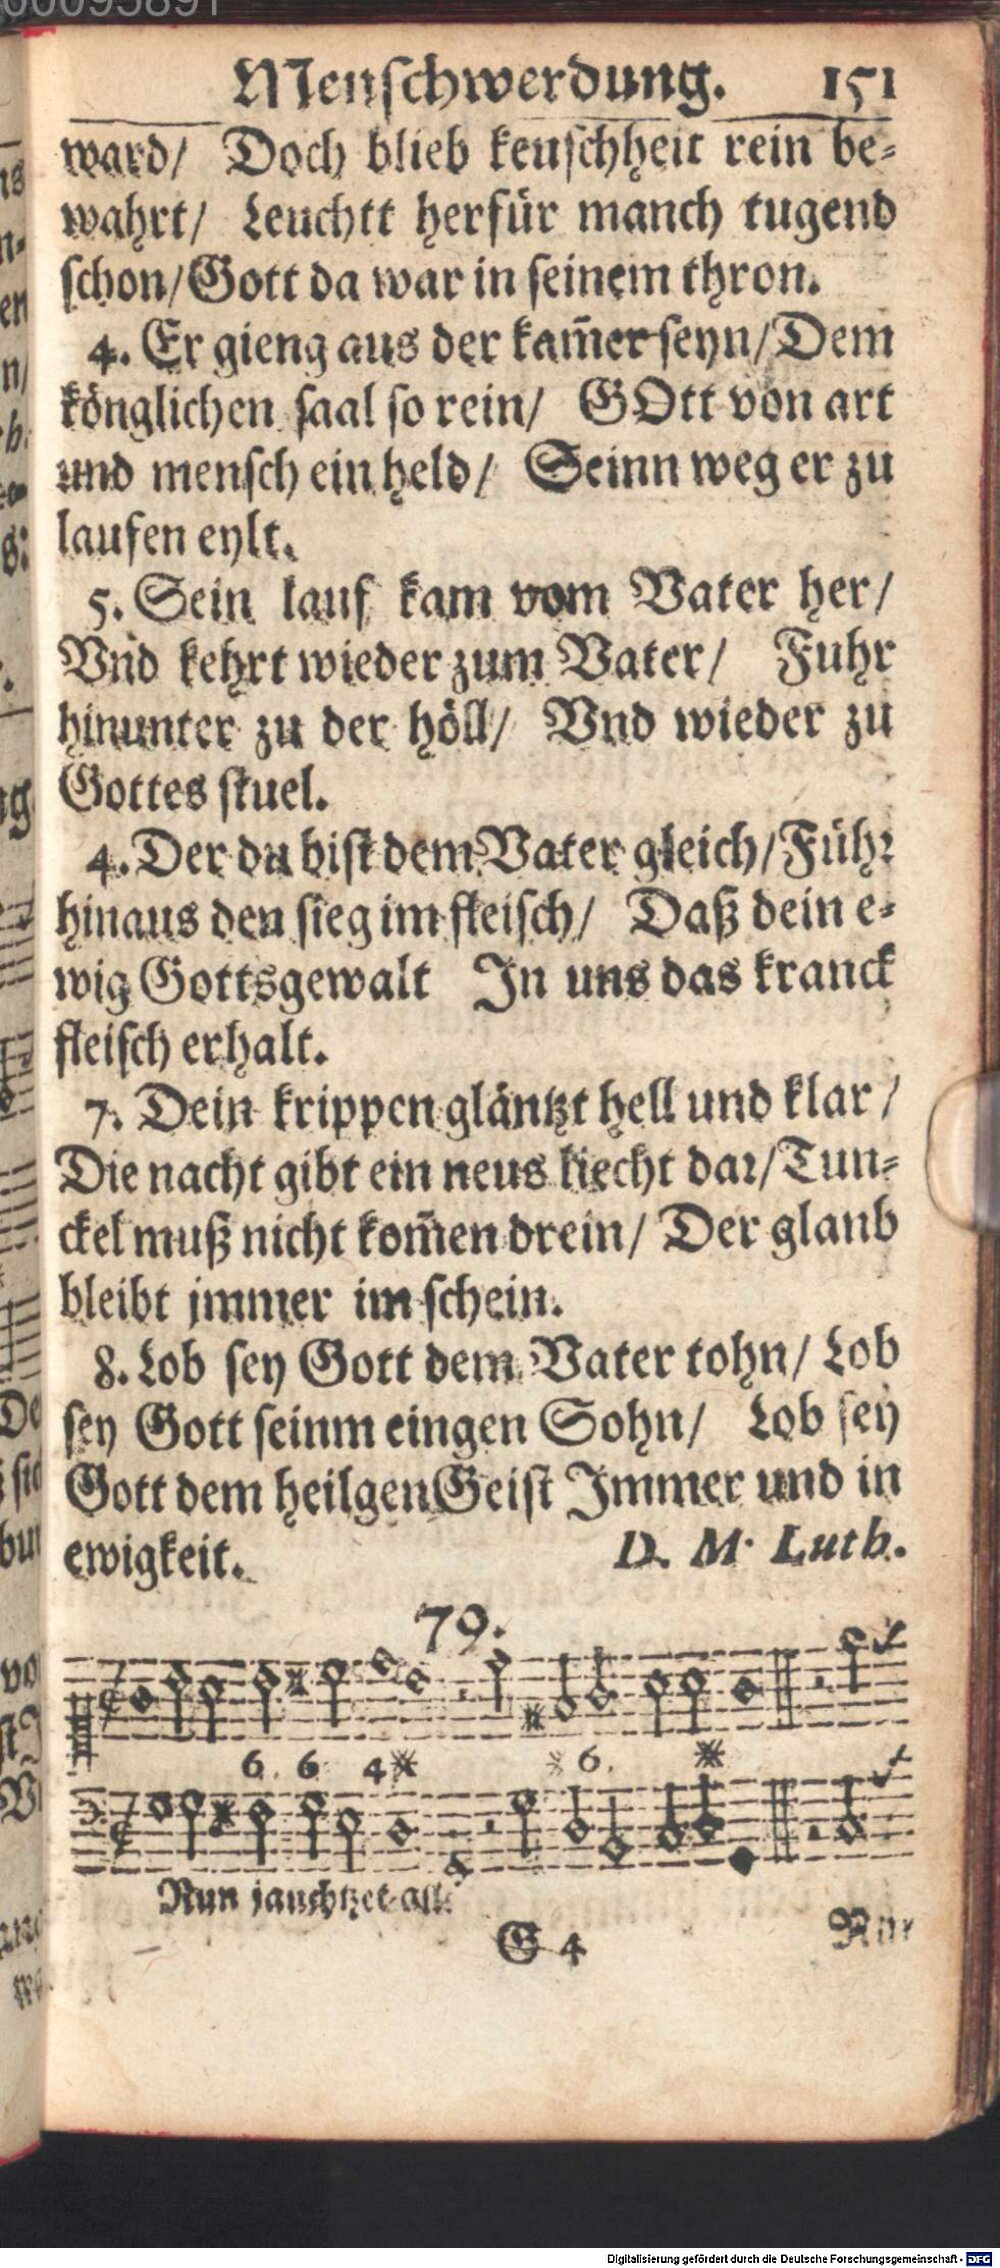 00095891
Menſchwerdung. 151
ward/ Doch blieb keuſchheit rein be⸗
wahrt/ Leuchtt herfür manch tugend
ſchon/ Gott da war in ſeinem thron.
4. Er gieng aus der kam̃er ſeyn/ Dem
könglichen ſaal ſo rein/ GOtt von art
und menſch ein held/ Seinn weg er zu
laufen eylt.
5. Sein lauf kam vom Vater her/
Vnd kehrt wieder zum Vater/ Fuhr
hinunter zu der höll/ Vnd wieder zu
Gottes ſtuel.
4. Der du biſt dem Vater gleich/ Führ
hinaus den ſieg im fleiſch/ Daß dein e⸗
wig Gottsgewalt In uns das kranck
fleiſch erhalt.
7. Dein krippen gläntzt hell und klar/
Die nacht gibt ein neus liecht dar/ Tun⸗
ckel muß nicht kom̃en drein/ Der glaub
bleibt jmmer im ſchein.
8. Lob ſey Gott dem Vater tohn/ Lob
ſey Gott ſeinm eingen Sohn/ Lob ſey
Gott dem heilgen Geiſt Immer und in
ewigkeit. D. M. Luth.
79.
6 6 4 6
Nun jauchtzet all
G 4 Nun
Digitalisierung gefördert durch die Deutsche Forschungsgemeinschaft - DFG